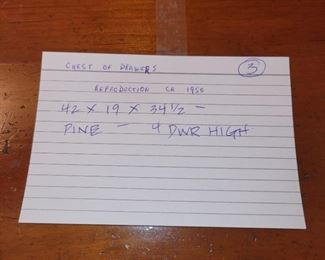 CHEST OF DRAWERS 3
REPRODUCTION CR 1950
42 X 19 X 34 1/2 –
PINE – 4 DWR HIGH